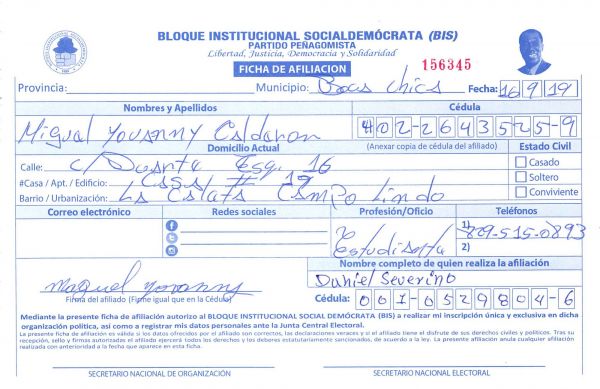 BLOQUE INSTITUCIONAL SOCIALDEMÓCRATA (BIS)
PARTIDO PEÑAGOMISTA
Libertad, Justicia, Democracia y Solidaridad
FICHA DE AFILIACION
156345
Provincia: Municipio: Boca Chica Fecha: 16/9/19
Nombres y Apellidos Cédula
Migual Yovanny Calderon 402-2643525-9
Domicilio Actual (Anexar copia de cédula del afiliado) Estado Civil
Calle: c/ Duarte Esq. 16 Casado
#Casa / Apt. / Edificio: Casa # 19 Soltero
Barrio / Urbanización: La Caleta Campo Lindo Conviviente
Correo electrónico Redes sociales Profesión/Oficio Teléfonos
1) 829-515-0893
Estudiante 2)
Nombre completo de quien realiza la afiliación
Maguel Yovanny Daniel Severino
Firma del afiliado (Firme igual que en la Cédula) Cédula: 001-0529804-6
Mediante la presente ficha de afiliación autorizo al BLOQUE INSTITUCIONAL SOCIAL DEMÓCRATA (BIS) a realizar mi inscripción única y exclusiva en dicha
organización política, así como a registrar mis datos personales ante la Junta Central Electoral.
La presente ficha de afiliación es válida si los datos ofrecidos por el afiliado son correctos, las declaraciones veraces y si el afiliado tiene el disfrute de sus derechos civiles y políticos. Tras su
recepción, sello y firmas autorizadas el afiliado ejercerá todos los derechos y los deberes estatutariamente sancionados, de acuerdo a la ley. La presente afiliación anula cualquier afiliación
realizada con anterioridad a la fecha que aparece en esta ficha.
SECRETARIO NACIONAL DE ORGANIZACIÓN SECRETARIO NACIONAL ELECTORAL